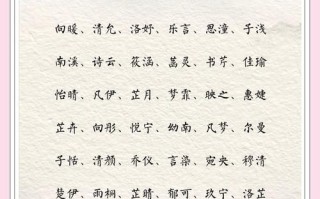 向暖、清允、洛妤、乐言、思潼、子浅
南溪、诗云、筱涵、蒿灵、书芹、佳瑜
怡晴、凡伊、芷月、梦霏、映之、惠婕
芷卉、向彤、悦宁、幼南、凡梦、尔曼
子恬、清颜、乔仪、言柒、宛央、穆清
楚伊、雨桐、芷晴、郁可、玖宁、洛芷